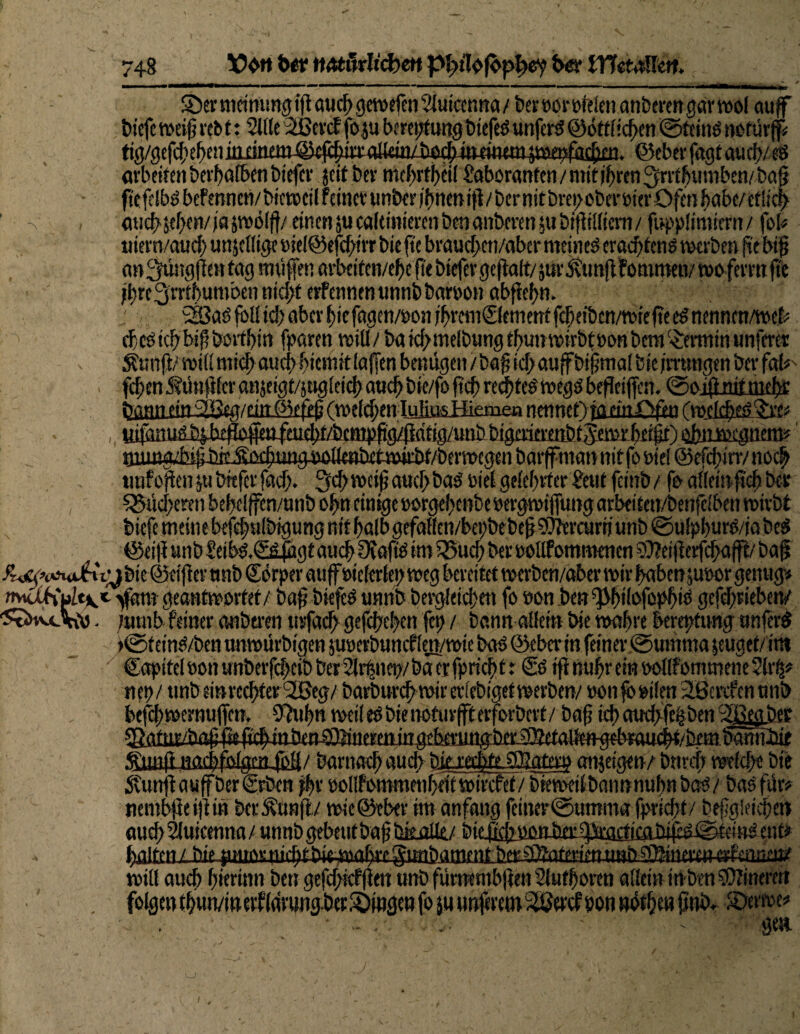 748 Von der natürlichen Philosophey der Metallen.
Der meinung ist auch gewesen Auicenna / der vor vielen anderen gar wol auff
diese weiß redt: Alle Werck so zu bereytung dieses unsers Göttlichen Steins notürff-
tig/geschehen in einem Geschirr allein/doch in einem zweyfachen. Geber sagt auch/ es
arbeiten derhalben dieser zeit der mehrtheil Laboranten / mit ihren Irrthumben/ daß
sie selbs bekennen/ dieweil keiner under ihnen ist / der nit drey oder vier Ofen habe/ etlich
auch zehen/ ja zwölff/ einen zu calcinieren den anderen zu distilliern / supplimiern / sol-
uiern/auch unzellige viel Geschirr die sie brauchen/aber meines erachtens werden sie biß
an Jüngsten tag müssen arbeiten/ehe sie dieser gestalt/ zur Kunst kommen/ wo ferrn sie
jhre Irrthumben nicht erkennen unnd darvon abstehn.
Was soll ich aber hie sagen/von jhrem Element scheiden/wie sie es nennen/wel-
ches ich biß dorthin sparen will / da ich meldung thun wirdt von dem Termin unserer
Kunst/ will mich auch hiemit lassen benügen / daß ich auff dißmal die jrrungen der fal-
schen Künstler anzeigt/zugleich auch die/so sich rechtes wegs befleissen. So ist nit mehr
dann ein Weg/ein Gefeß (welchen Iulius Hiemen nennet) ja ein Ofen (welches Tre-
uisanus
Kochung vollendet wirdt/derwegen darff man nit so viel Geschirr/ noch
unkosten zu dieser sach. Ich weiß auch das viel gelehrter Leut seind / so allein sich der
Bücheren behelffen/und ohn einige vorgehende vergwissung arbeiten/denselben wirdt
diese meine beschuldigung nit halb gefallen/beyde deß Mercurij und Sulphurs/ja des
Geist und Leibs. Es sagt auch Rasis im Buch der vollkommenen Meisterschafft/ daß
die Geister und Cörper auff vielerley weg bereitet werden/aber wir haben zuvor genug-
sam geantwortet / daß dieses unnd dergleichen so von den Philosophis geschrieben/
umb keiner anderen ursach geschehen sey / dann allein die wahre bereytung unsers
Steins/den unwürdigen zuverdunklen/wie das Geber in seiner Summa zeuget/ im
Capitel von underscheid der Artzney/ da er spricht: Es ist nuhr ein vollkommene Artz-
ney / und ein rechter Weg / dardurch wir erlediget werden/ von so vilen Wercken und
beschwernussen. Nuhn weil es die noturfft erfordert / daß ich auch setz den Weg der
Natur/daß sie sich in den Mineren in geberung der Metallen gebraucht/dem dann die
Kunst nachfolgen soll/ darnach auch die rechte Matery anzeigen/ durch welche die
Kunst auff der Erden jhr vollkommenheit wircket / dieweil dann nuhn das / das für-
nembste ist in der Kunst/ wie Geber im anfang seiner Summa spricht / deßgleichen
auch Auicenna / unnd gebeut daß die alle/ die sich von der Practica dises Steins ent-
halten / die zuuor nicht die wahre Fundament der Materien und Mineren erkennen/
will auch hierinn den geschicksten und fürnembsten Authoren allein in den Mineren
folgen thun/in erklärung der Dingen so zu unserem Werck von nöthen sind. Derwe-
gen